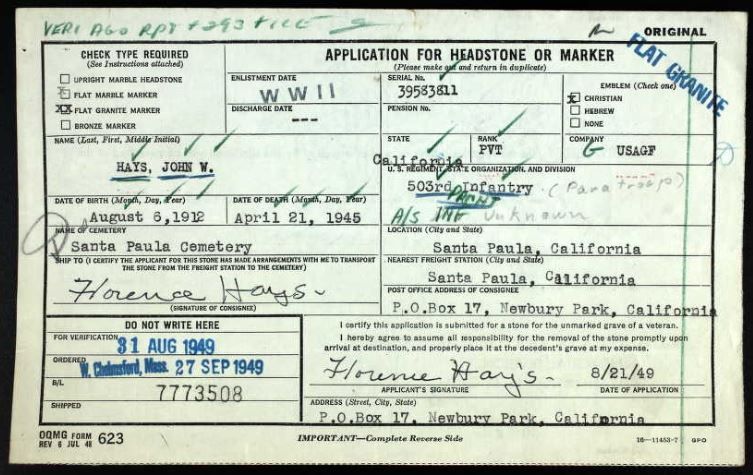 VERI AGO RPT + 293 FILE
ORIGINAL
FLAT GRANITE
CHECK TYPE REQUIRED
(See Instructions attached)
UPRIGHT MARBLE HEADSTONE
FLAT MARBLE MARKER
XX FLAT GRANITE MARKER
BRONZE MARKER
APPLICATION FOR HEADSTONE OR MARKER
(Please make out and return in duplicate)
ENLISTMENT DATE
WWII
DISCHARGE DATE
---
SERIAL No.
39583811
PENSION No.
EMBLEM (Check one)
X CHRISTIAN
HEBREW
NONE
NAME (Last, First, Middle Initial)
HAYS, JOHN W.
STATE
California
RANK
PVT
COMPANY
G USAGF
U. S. REGIMENT, STATE ORGANIZATION, AND DIVISION
503rd Infantry (Paratroop)
PRCHT
A/S INF Unknown
DATE OF BIRTH (Month, Day, Year)
August 6,1912
DATE OF DEATH (Month, Day, Year)
April 21, 1945
NAME OF CEMETERY
Santa Paula Cemetery
LOCATION (City and State)
Santa Paula, California
SHIP TO (I CERTIFY THE APPLICANT FOR THIS STONE HAS MADE ARRANGEMENTS WITH ME TO TRANSPORT
THE STONE FROM THE FREIGHT STATION TO THE CEMETERY)
Florence Hays-
(SIGNATURE OF CONSIGNEE)
NEAREST FREIGHT STATION (City and State)
Santa Paula, California
POST OFFICE ADDRESS OF CONSIGNEE
P.O.Box 17, Newbury Park, California
DO NOT WRITE HERE
FOR VERIFICATION
31 AUG 1949
ORDERED
W. Chelmsford, Mass. 27 SEP 1949
B/L
7773508
SHIPPED
I certify this application is submitted for a stone for the unmarked grave of a veteran.
I hereby agree to assume all responsibility for the removal of the stone promptly upon
arrival at destination, and properly place it at the decedent's grave at my expense.
Florence Hay's- 8/21/49
APPLICANT'S SIGNATURE DATE OF APPLICATION
ADDRESS (Street, City, State)
P.O.Box 17. Newbury Park, California
OQMG FORM
REV 6 JUL 48 623
IMPORTANT—Complete Reverse Side
16—11453-7 GPO